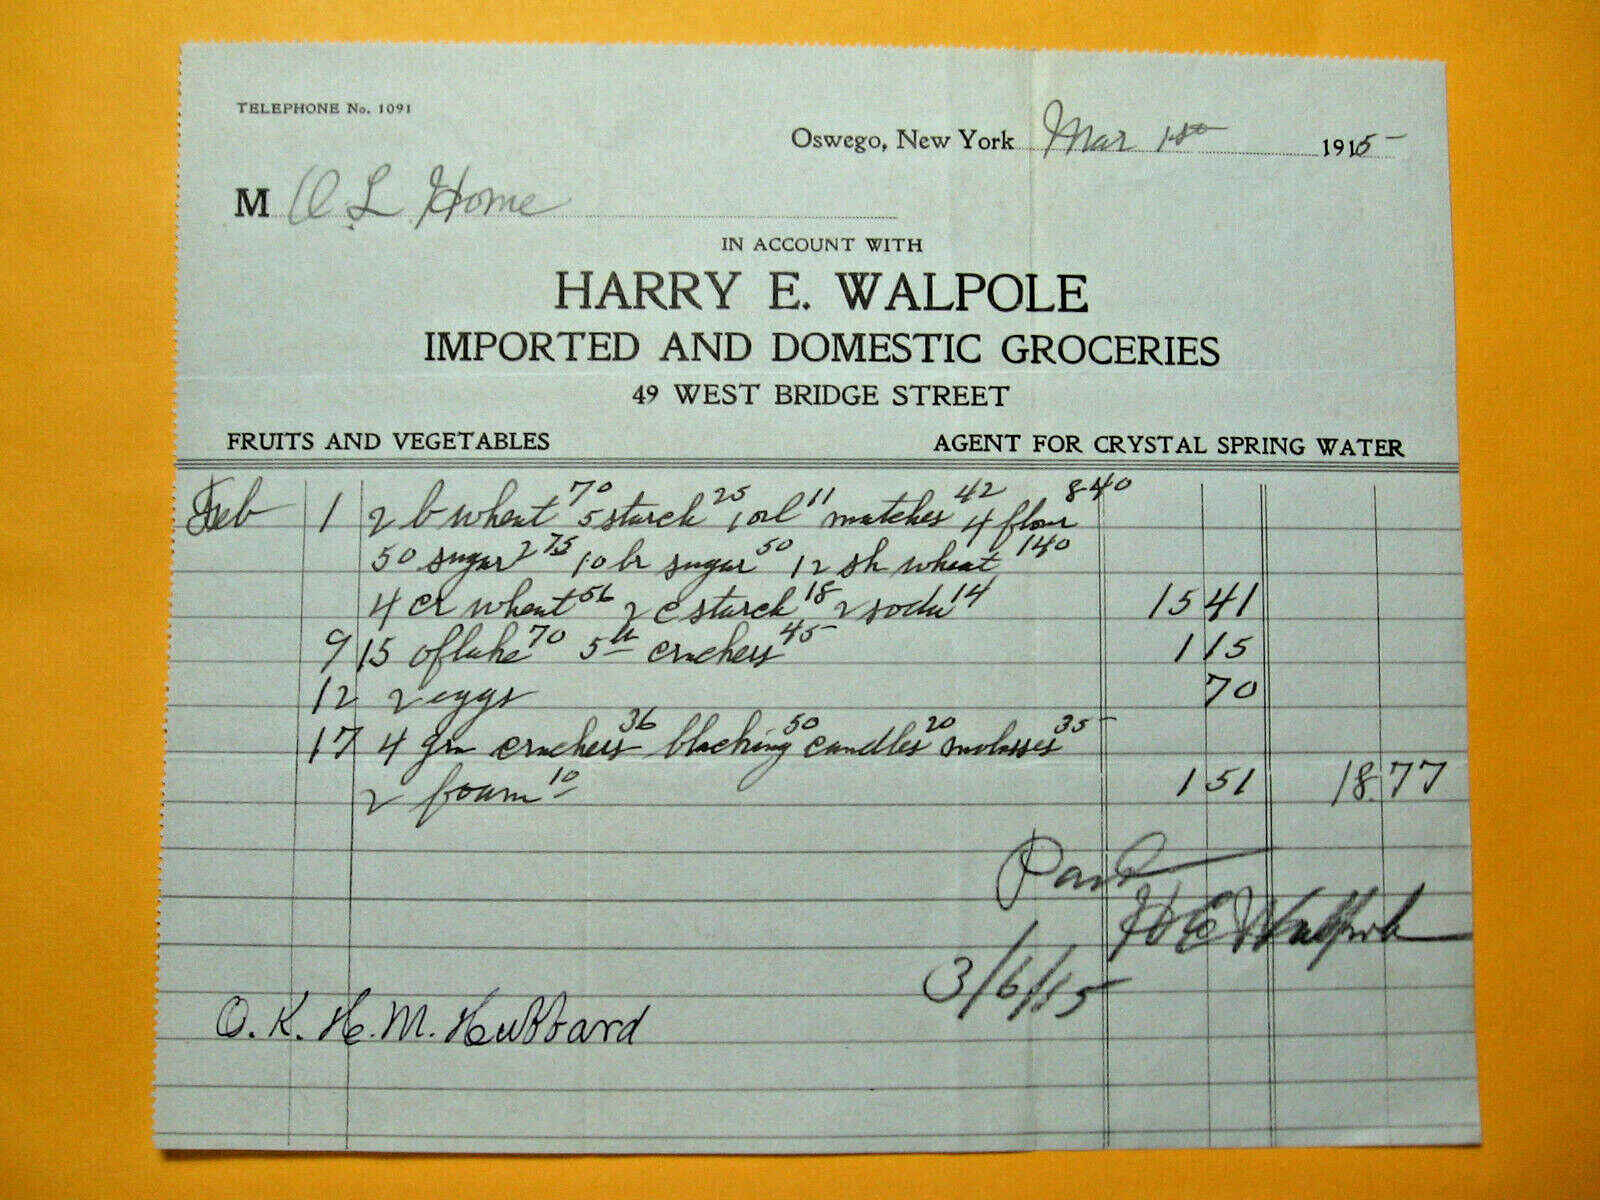 TELEPHONE No. 1091
Oswego, New York Mar 1st 1915
M O L Home
IN ACCOUNT WITH
HARRY E. WALPOLE
IMPORTED AND DOMESTIC GROCERIES
49 WEST BRIDGE STREET
FRUITS AND VEGETABLES AGENT FOR CRYSTAL SPRING WATER
Feb 1 2 b wheat 70 5 starch 25 1 oil 11 matches 42 4 flour 840
50 sugar 275 10 br sugar 50 12 sh wheat 140
4 cr wheat 56 2 c starch 18 2 soda 14 15 41
9 15 oflake 70 5 lb crackers 45 1 15
12 2 eggs 70
17 4 grm crackers 36 blacking 50 candles 20 molasses 35
2 foam 10 1 51 18.77
Paid
H E Walpole
3/6/15
O.K. H.M. Hubbard